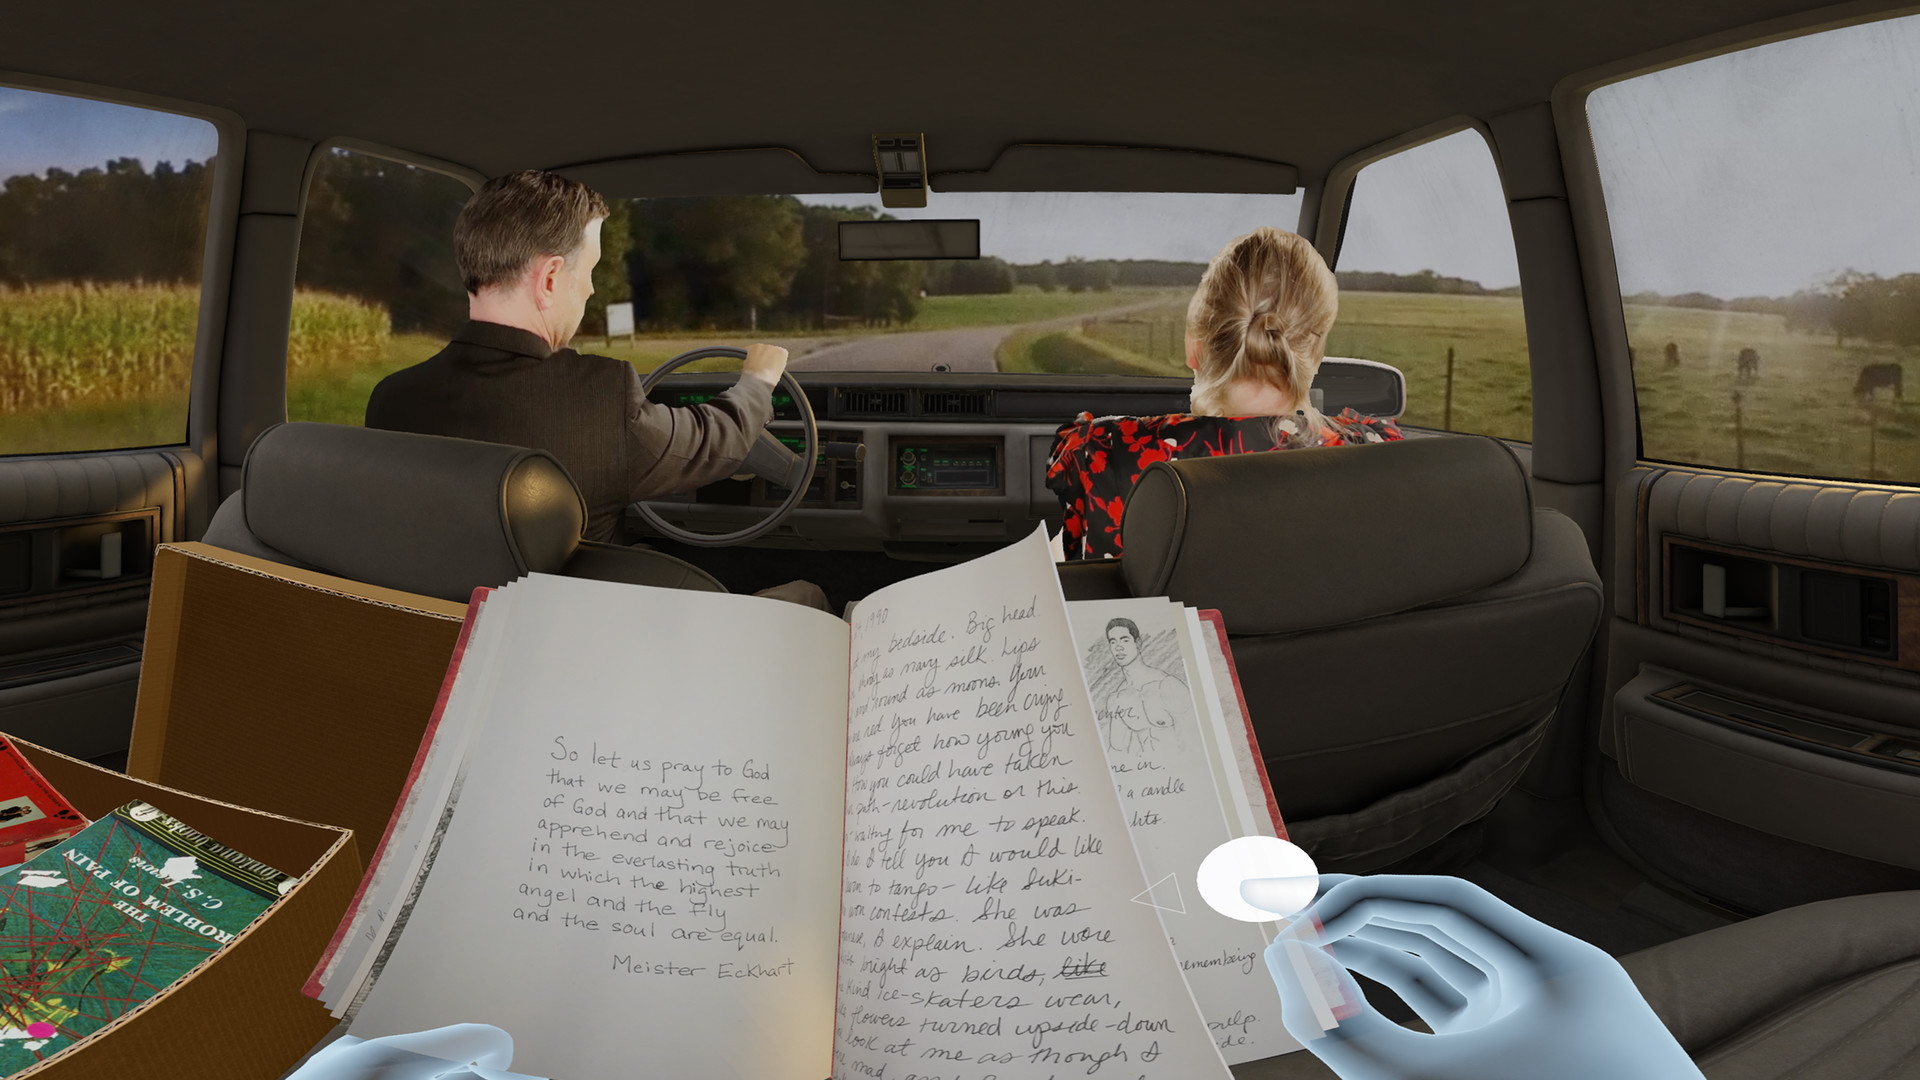 So let us pray to God
that we may be free
of God and that we may
apprehend and rejoice
in the everlasting truth
in which the highest
angel and the fly
and the soul are equal.
Meister Eckhart
1990
my bedside. Big head.
as navy silk. Lips
and round as moons. Your
red. You have been crying.
forget how young you
How you could have taken
path-revolution or this.
waiting for me to speak.
I tell you I would like
to tango - like Suki-
won contests. She was
I explain. She wore
bright as birds, like
kind ice-skaters wear,
flowers turned upside-down
look at me as though I
mad,
in.
a candle
remembering
pulp.
THE
PROBLEM OF PAIN
C. S. Lewis
Fontana Books